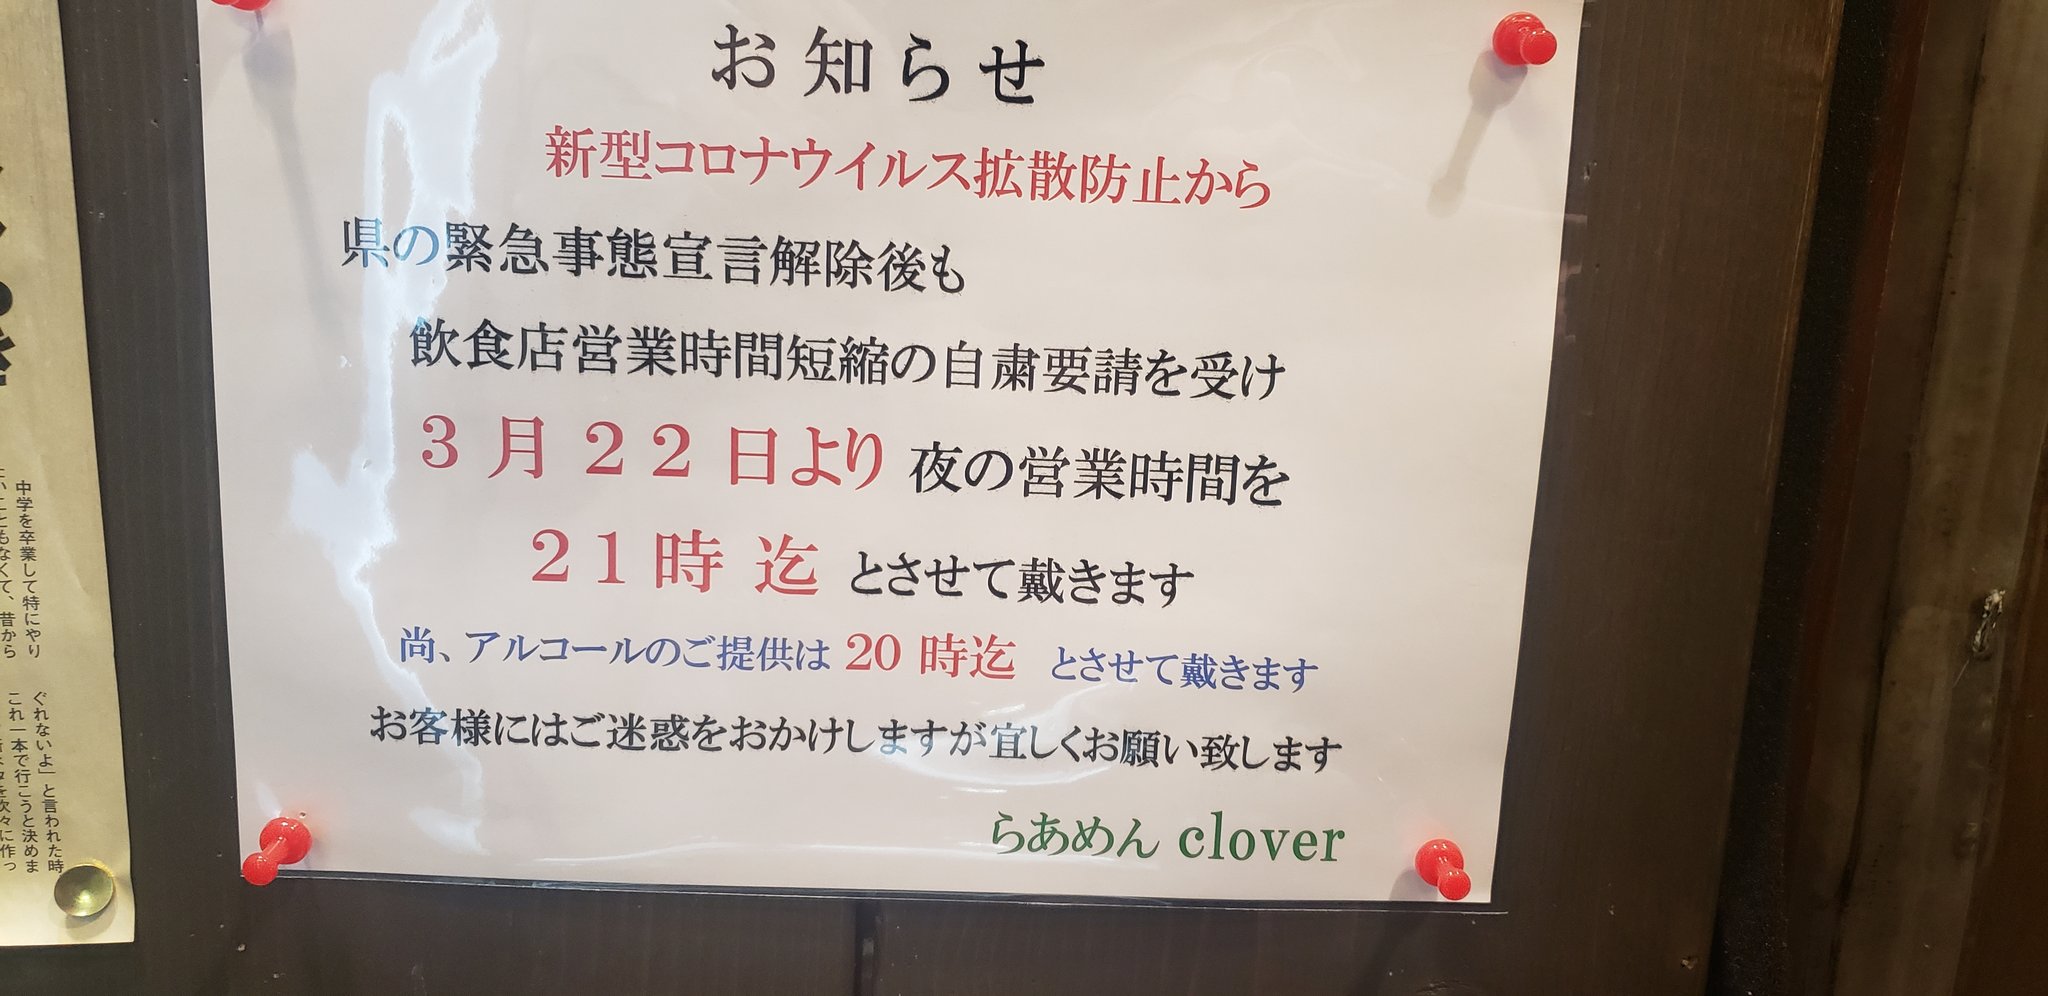 お知らせ
新型コロナウイルス拡散防止から
県の緊急事態宣言解除後も
飲食店営業時間短縮の自粛要請を受け
３月２２日より夜の営業時間を
２１時 迄 とさせて戴きます
尚、アルコールのご提供は 20 時迄 とさせて戴きます
お客様にはご迷惑をおかけしますが宜しくお願い致します
らあめん clover
中学を卒業して特にやり
こともなくて、昔から
ぐれないよ」と言われた時
これ一本で行こうと決めま